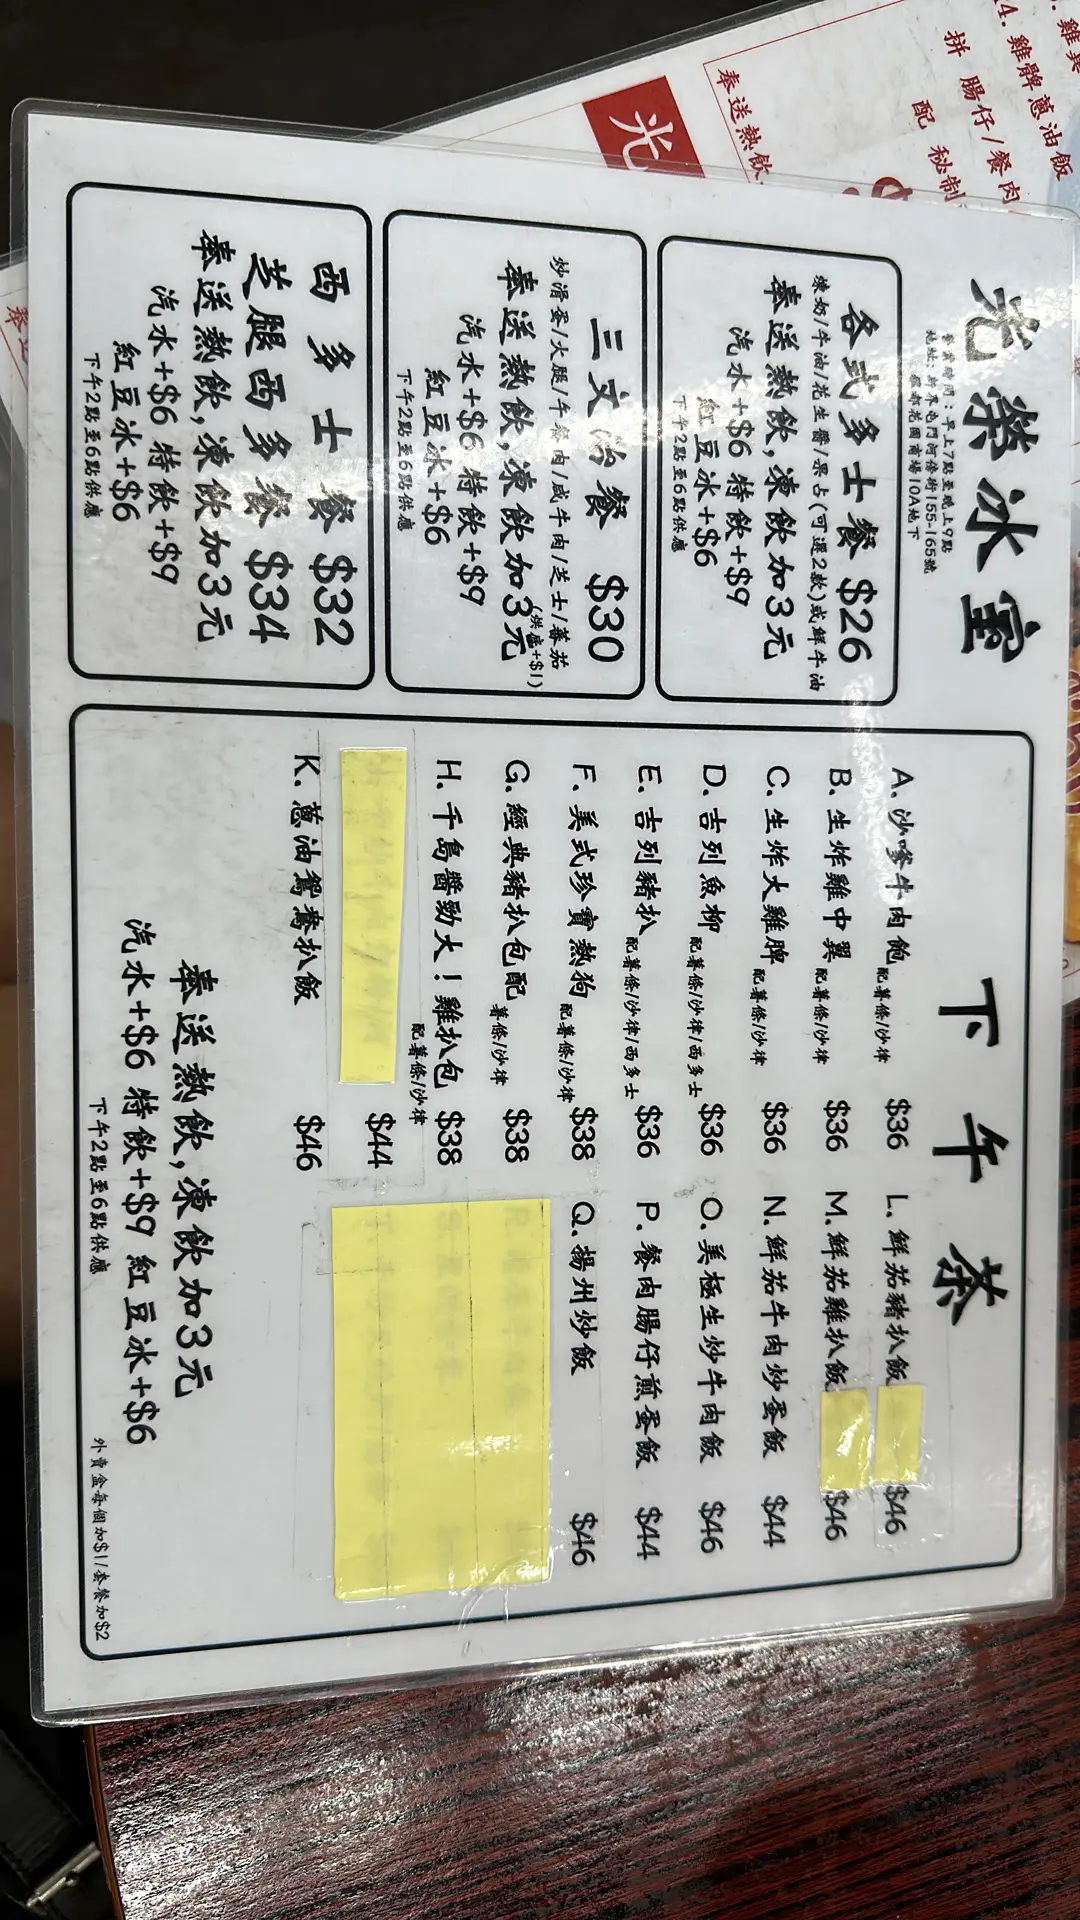 光榮冰室
營業時間：早上7點至晚上9點
地址：新界屯門河傍街155-165號
麗都花園商場10A地下
各式多士餐 $26
煉奶/牛油/花生醬/果占(可選2款)或鮮牛油
奉送熱飲,凍飲加3元
汽水+$6 特飲+$9
紅豆冰+$6
下午2點至6點供應
三文治餐 $30
炒滑蛋/火腿/午餐肉/咸牛肉/芝士/蕃茄
(烘底+$1)
奉送熱飲,凍飲加3元
汽水+$6 特飲+$9
紅豆冰+$6
下午2點至6點供應
西多士餐 $32
芝腿西多餐 $34
奉送熱飲,凍飲加3元
汽水+$6 特飲+$9
紅豆冰+$6
下午2點至6點供應
下午茶
A. 沙嗲牛肉飽 配薯條/沙律 $36
B. 生炸雞中翼 配薯條/沙律 $36
C. 生炸大雞脾 配薯條/沙律 $36
D. 吉列魚柳 配薯條/沙律/西多士 $36
E. 吉列豬扒 配薯條/沙律/西多士 $36
F. 美式珍寶熱狗 配薯條/沙律 $38
G. 經典豬扒包配 薯條/沙律 $38
H. 千島醬勁大！雞扒包 $38
配薯條/沙律
$44
K. 蔥油鴛鴦扒飯 $46
L. 鮮茄豬扒飯 $46
M. 鮮茄雞扒飯 $46
N. 鮮茄牛肉炒蛋飯 $44
O. 美極生炒牛肉飯 $46
P. 餐肉腸仔煎蛋飯 $44
Q. 揚州炒飯 $46
奉送熱飲,凍飲加3元
汽水+$6 特飲+$9 紅豆冰+$6
下午2點至6點供應
外賣盒每個加$1/套餐加$2
光
奉送熱飲
4. 雞髀蔥油飯
拼 腸仔/餐肉
配 秘制